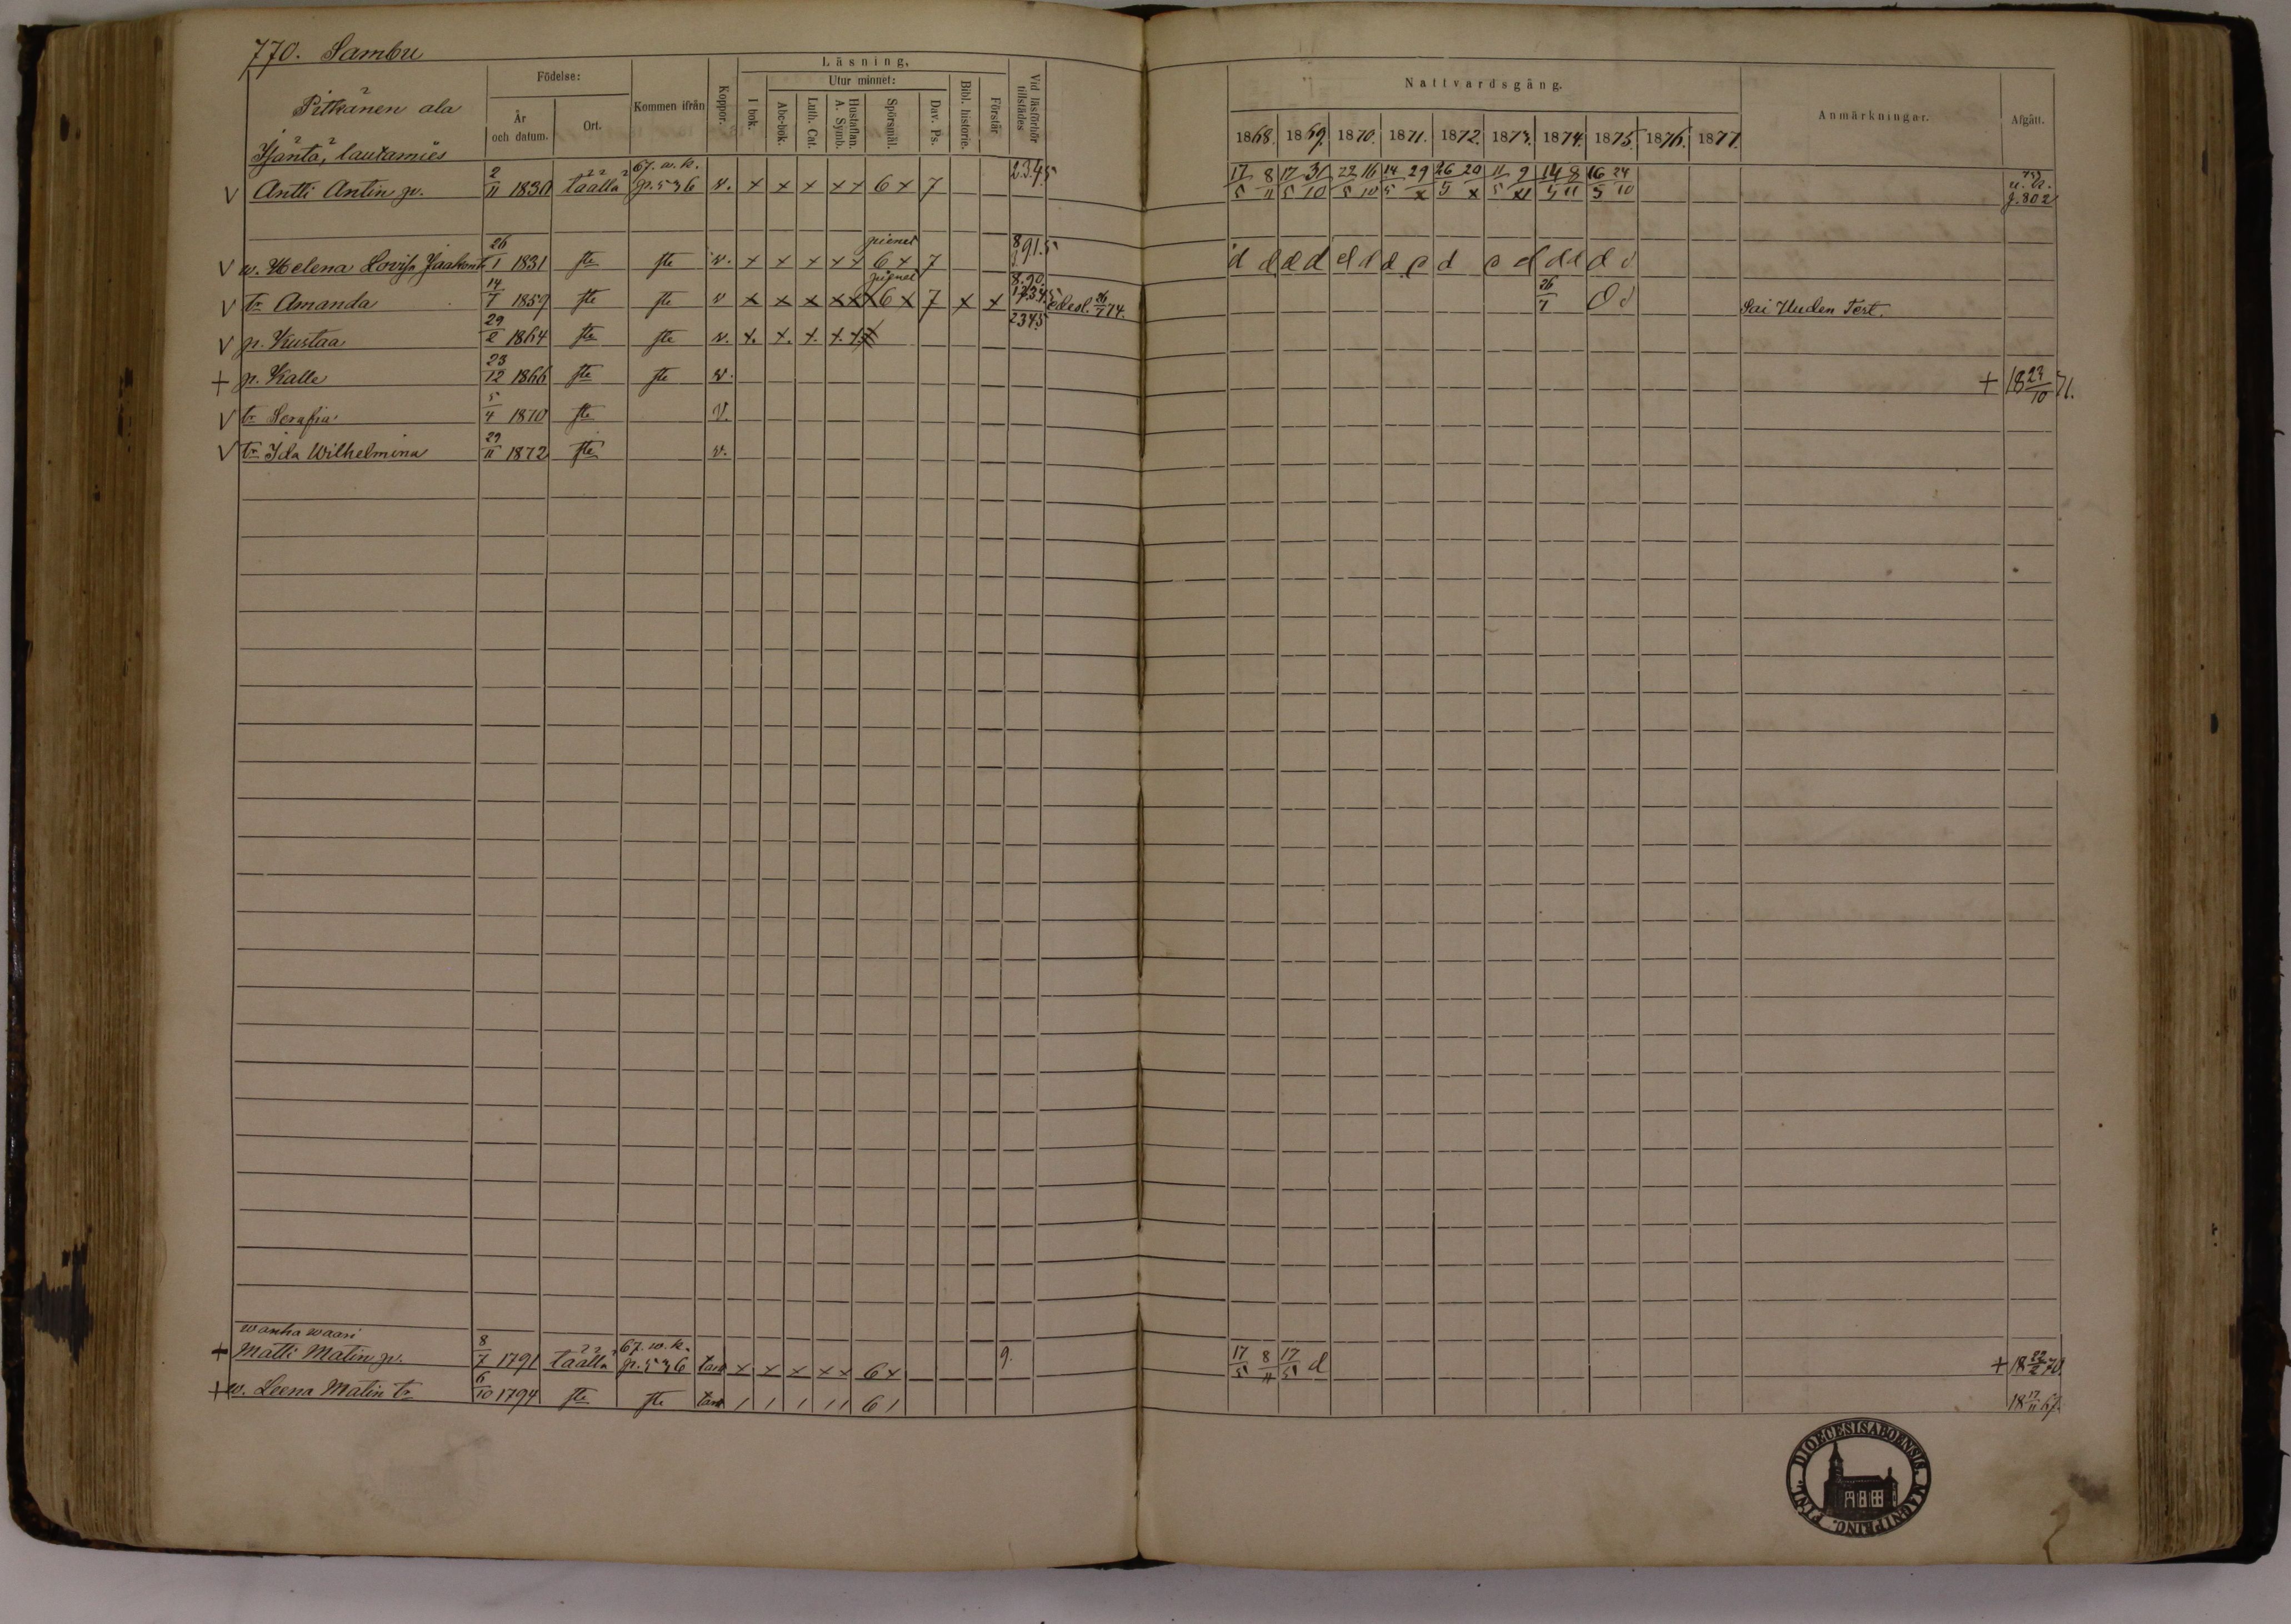 770. Sambu
Pitkänen ala
Isäntä, lautamies
Födelse:
År och datum.
Ort.
Kommen ifrån
Koppor.
Läsning,
I bok.
Utur minnet:
Abc-bok.
Luth. Cat.
Hustaflan. A. Symb.
Spörsmål.
Dav. Ps.
Bibl. historie.
Förstår
Vid läsförhör tillstädes
Nattvardsgång.
1868. 1869. 1870. 1871. 1872. 1873. 1874. 1875. 1876. 1877.
Anmärkningar.
Afgått.
V Antti Antin p. 2/11 1830 täällä 67. w. k. p. 536 v. x x x x x 6 x 7 2.3.4.5 17/5 8/11 17/5 31/10 22/5 16/10 14/5 29/x 26/5 20/x 11/5 9/XI 14/5 8/11 16/5 24/10 p. 802
V w. Helena Lovisa Jaakont. 26/1 1831 ste ste v. x x x x x pienet 6 x 7 d d d d d d d d d d d d d
V tr Amanda 14/7 1859 ste ste v x x x x x x pienet 6 x 7 x x 26/7 74. 26/7 Sai Uuden Test.
V p. Kustaa 29/2 1864 ste ste v. x. x. x. x. x 2345
+ p. Kalle 23/12 1866 ste ste v. + 18 23/10 71.
V tr Serafia 5/4 1870 ste V.
V tr Ida Wilhelmina 29/11 1872 ste v.
wanha waari
+ Matti Matin p. 8/7 1791 täällä 67. w. k. p. 536 x x x x x 6 x 9. 17/5 8/11 17/5 d + 18 22/2 70.
+ w. Leena Matin tr 6/10 1794 ste ste 1 1 1 1 1 6 1 18 17/11 67.
DIOECESIS ABOENSIS. MAGNI PRINC. FINL.